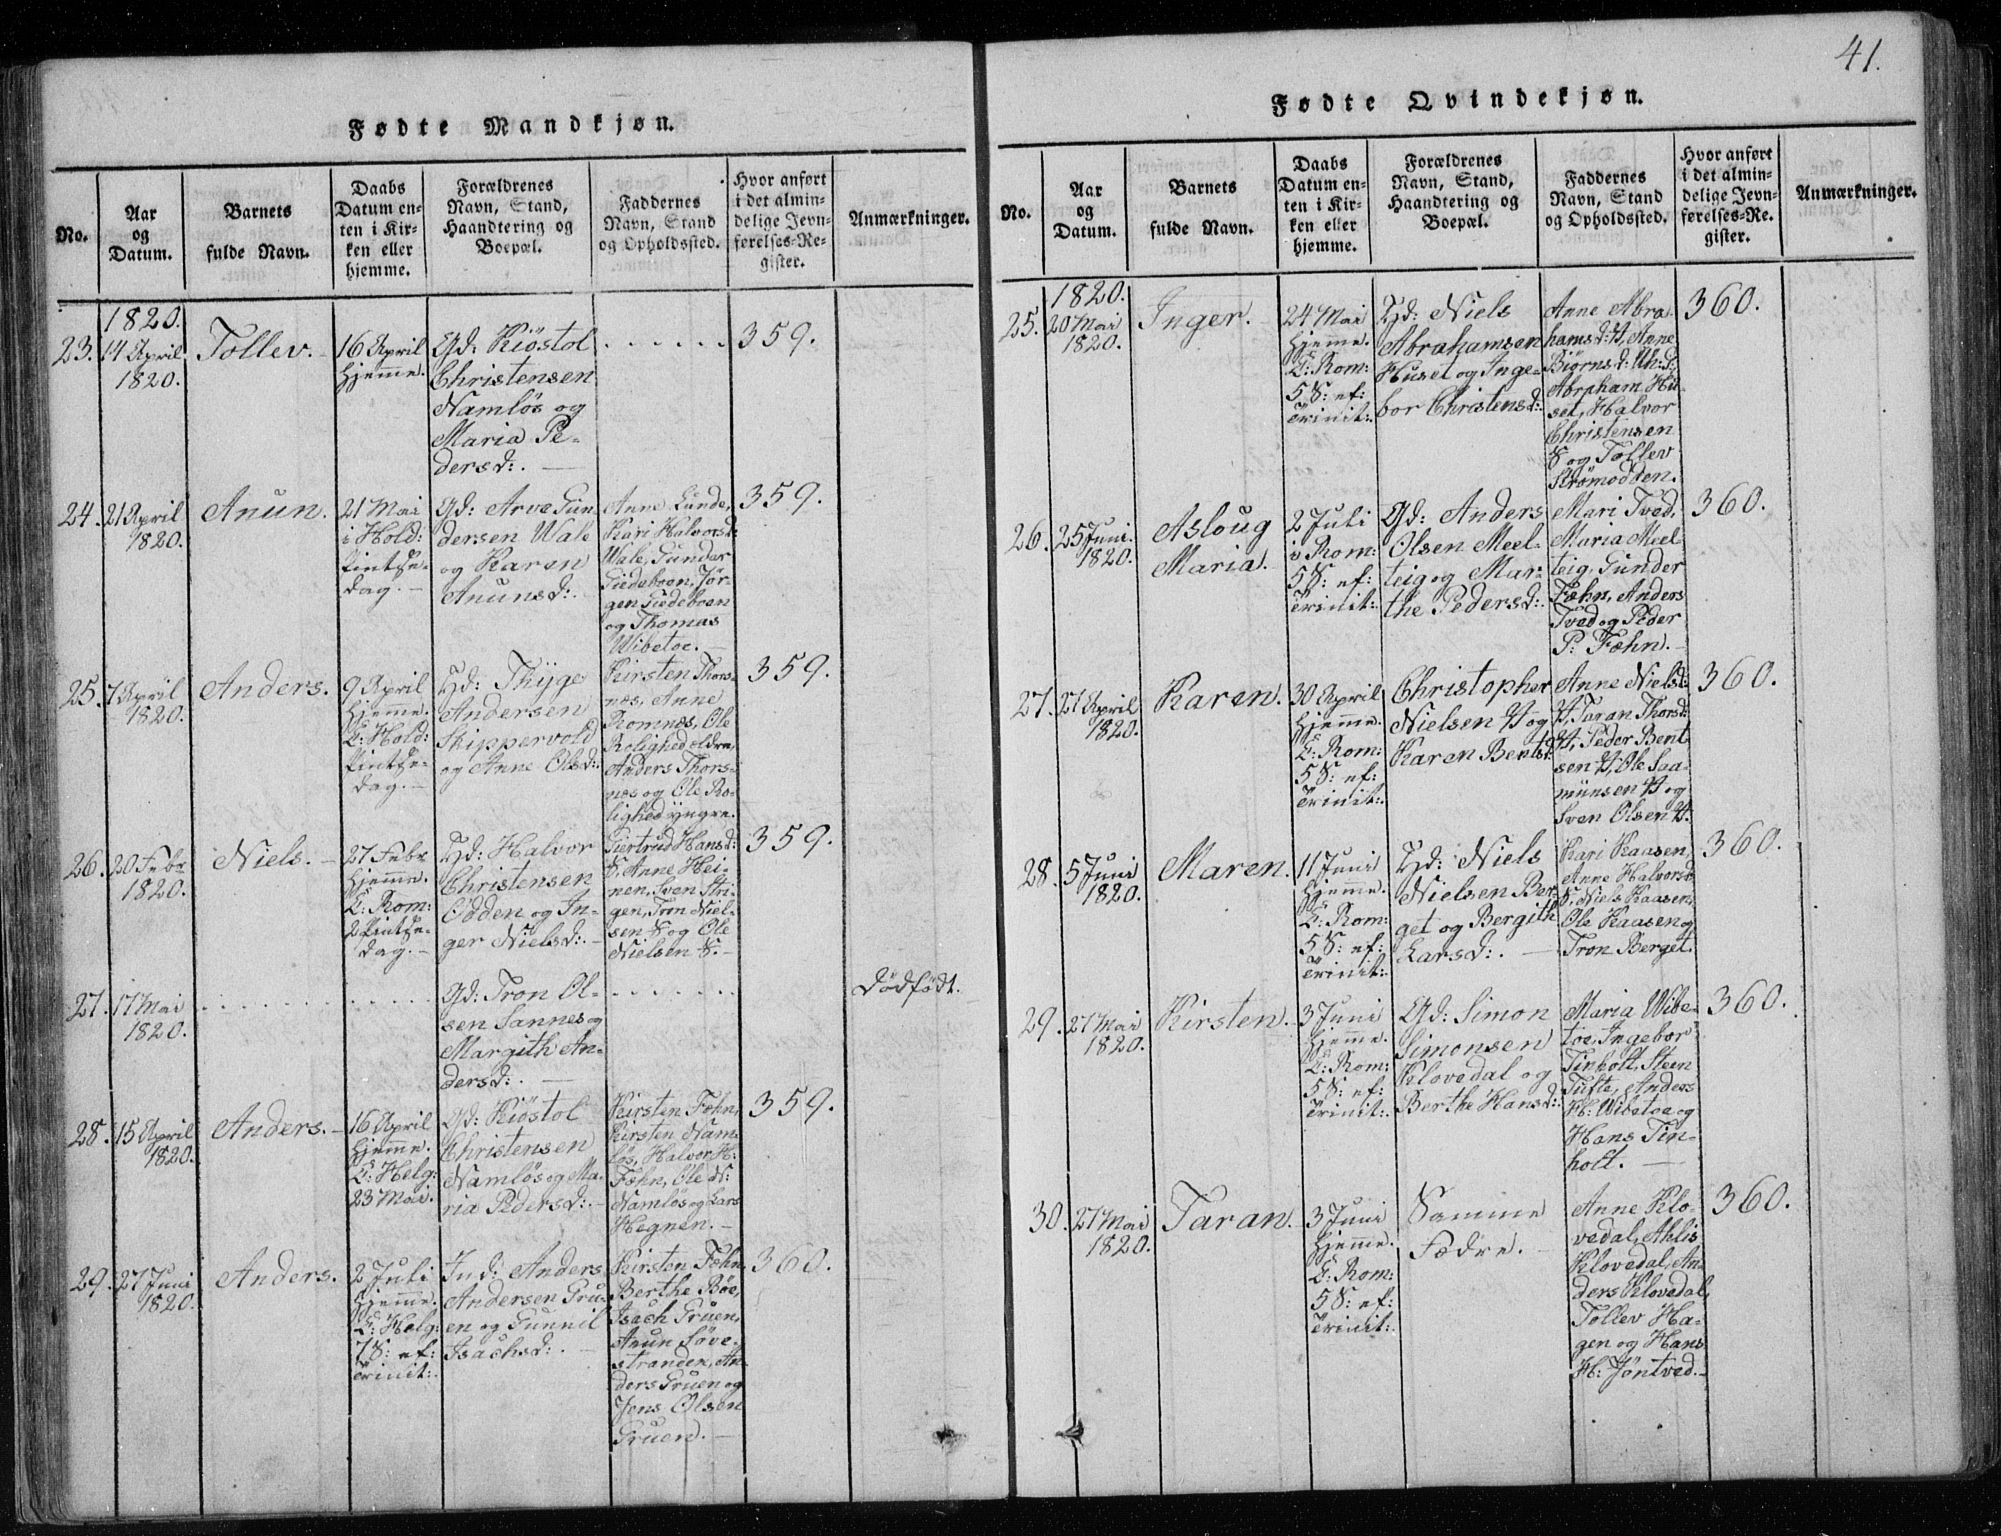 41.
Fødte Mandkjøn.
No.
Aar
og
Datum.
Barnets
fulde Navn.
Daabs
Datum en-
ten i Kir-
ken eller
hjemme.
Forældrenes
Navn, Stand,
Haandtering og
Boepæl.
Faddernes
Navn, Stand
og Opholdssted.
Hvor anført
i det almin-
delige Jevn-
førelses-Re-
gister.
Anmærkninger.
1820.
23. 14 April
1820.
Tollev.
16 April
Hjemme.
Gd: Kiöstol
Christensen
Namlös og
Maria Pe-
dersd:.
359.
24. 21 April
1820.
Anun.
21 Mai
i Hold:
Pintse-
dag.
Gd: Arve Gun
dersen Wale
og Karen
Anunsd:.
Anne Lunde,
Kari Halvorsd:
Wale, Gunder
Tiedeboen, Jør-
gen Tiedeboen
og Thomas
Wibetoe.
359.
25. 7 April
1820.
Anders.
9 April
Hjemme.
I: Hold:
Pintse-
dag.
Hd: Thyge
Andersen
Skippervold
og Anne Olsd:.
Kirsten Thors-
næs, Anne
Romnæs, Ole
Rolighed eldre,
Anders Thors-
næs og Ole Ro-
lighed yngre.
359.
26. 20 Febr
1820.
Niels.
27 Febr
Hjemme.
I: Rom:
2 Pintse-
dag.
Hd: Halvor
Christensen
Odden og In-
ger Nielsd:.
Giertrud Hansd:
S, Anne Hei-
nen, Sven Stri-
gen, Tron Niel-
sen S og Ole
Nielsen S.
359.
27. 17 Mai
1820.
Gd: Tron Ol-
sen Sannes og
Margith An-
dersd:.
Dödfödt.
28. 15 April
1820.
Anders.
16 April
Hjemme.
I: Helg:
23 Mai.
Gd: Kiöstol
Christensen
Namlös og Ma-
ria Pedersd:.
Kirsten Fæhn,
Kirsten Nam-
lös, Halvor H:
Fæhn, Ole N:
Namlös og Lars
Hegnen.
359.
29. 27 Juni
1820.
Anders.
2 Juli
Hjemme.
I: Helg:
7 S: ef:
Trinit:.
Ind: Anders
Andersen Gru-
en og Gunnil
Isachsd:.
Kirsten Fæhn,
Berthe Böe,
Isach Gruen,
Anun Löve-
stranden, An-
ders Gruen og
Jens Olsen
Gruen.
360.
Fødte Qvindekjøn.
No.
Aar
og
Datum.
Barnets
fulde Navn.
Daabs
Datum en-
ten i Kir-
ken eller
hjemme.
Forældrenes
Navn, Stand,
Haandtering og
Boepæl.
Faddernes
Navn, Stand
og Opholdssted.
Hvor anført
i det almin-
delige Jevn-
førelses-Re-
gister.
Anmærkninger.
1820.
25. 20 Mai
1820.
Inger.
24 Mai
Hjemme.
I: Rom:
5 S: ef:
Trinit:.
Hd: Niels
Abrahamsen
Huset og Inge-
bor Christensd:.
Anne Abra
hamsd: H, Anne
Biörnsd:
Abraham Hu-
set, Halvor
Christensen
S og Tollev
Strömodden.
360.
26. 25 Juni
1820.
Asloug
Maria.
2 Juli
i Rom:
5 S: ef:
Trinit:.
Gd: Anders
Olsen Meel-
teig og Mar-
the Pedersd:.
Mari Tved,
Maria Meel-
teig, Gunder
Fæhn, Anders
Tved og Peder
P: Fæhn.
360.
27. 27 April
1820.
Karen.
30 April
Hjemme.
I: Rom:
5 S: ef:
Trinit:.
Christopher
Nielsen H og
Karen Bentsd:
Anne Nielsd:
H, Taran Thorsd:
H, Peder Bent
sen H, Ole Saa-
münsen H og
Sven Olsen H.
360.
28. 5 Juni
1820.
Maren.
11 Juni
Hjemme.
I: Rom:
5 S: ef:
Trinit:.
Hd: Niels
Nielsen Ber-
get og Bergith
Larsd:.
Kari Kaasen,
Anne Halvorsd
S, Niels Kaasen,
Ole Kaasen og
Tron Berget.
360.
29. 27 Mai
1820.
Kirsten.
3 Juni
Hjemme.
I: Rom:
5 S: ef:
Trinit:.
Gd: Simon
Simonsen
Klovedal og
Berthe Hansd:.
Maria Wibe-
toe, Ingebor
Tinholt, Steen
Tufte, Anders
H: Wibetoe og
Hans Tin-
holt.
360.
30. 27 Mai
1820.
Taran.
3 Juni
Hjemme.
I: Rom:
5 S: ef:
Trinit:.
Samme
Fædre.
Anne Klo-
vedal, Ahlis
Klovedal, An-
ders Klovedal,
Tollev Ha-
gen og Hans
H: Jöntved.
360.